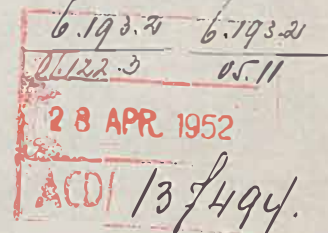 6.193.2 6.193.2
01.122.3 05.11
28 APR 1952
ACD/ 137494.